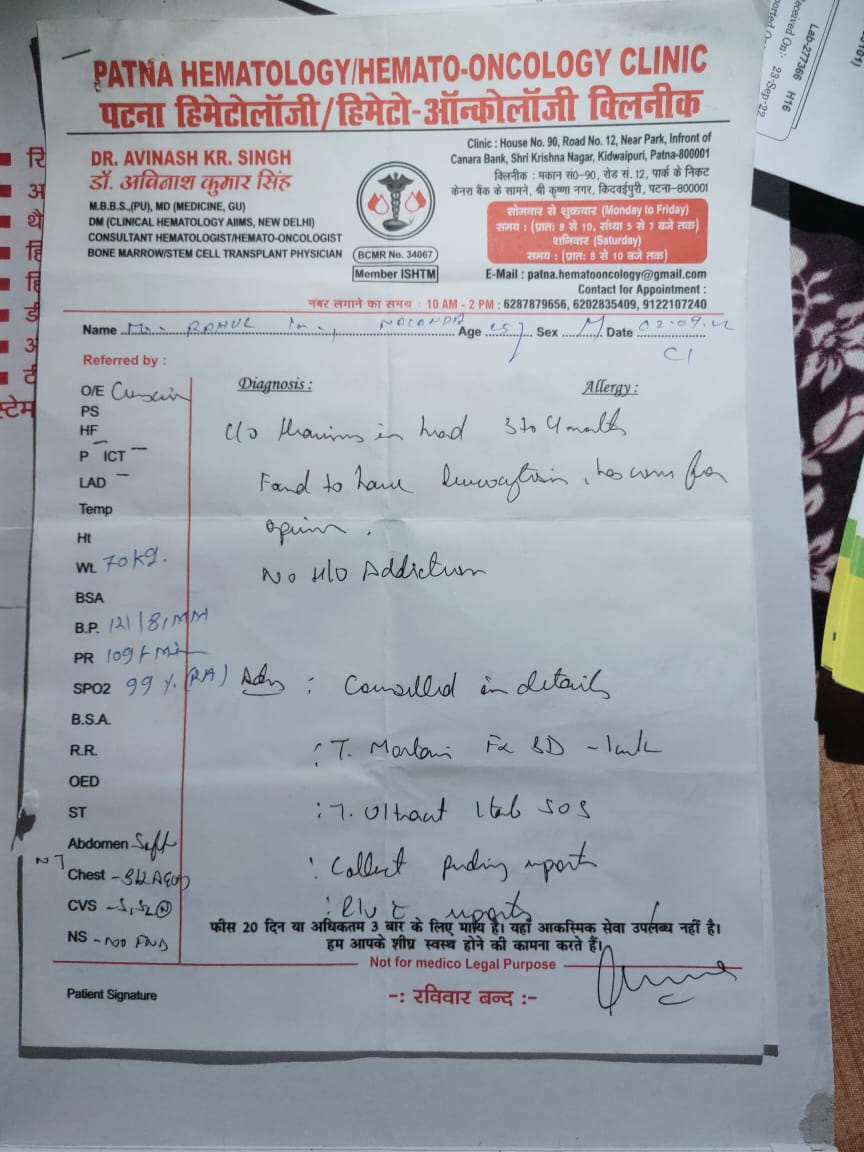 PATNA HEMATOLOGY/HEMATO-ONCOLOGY CLINIC
पटना हिमेटोलॉजी/हिमेटो-ऑन्कोलॉजी क्लिनीक
DR. AVINASH KR. SINGH
डॉ. अविनाश कुमार सिंह
M.B.B.S.,(PU), MD (MEDICINE, GU)
DM (CLINICAL HEMATOLOGY AIIMS, NEW DELHI)
CONSULTANT HEMATOLOGIST/HEMATO-ONCOLOGIST
BONE MARROW/STEM CELL TRANSPLANT PHYSICIAN
BCMR No. 34067
Member ISHTM
Clinic : House No. 90, Road No. 12, Near Park, Infront of
Canara Bank, Shri Krishna Nagar, Kidwaipuri, Patna-800001
क्लिनीक : मकान सं०-90, रोड सं. 12, पार्क के निकट
केनरा बैंक के सामने, श्री कृष्णा नगर, किदवईपुरी, पटना-800001
सोमवार से शुक्रवार (Monday to Friday)
समय : (प्रातः 8 से 10, संध्या 5 से 7 बजे तक)
शनिवार (Saturday)
समय : (प्रातः 8 से 10 बजे तक)
E-Mail : patna.hematooncology@gmail.com
Contact for Appointment :
नंबर लगाने का समय : 10 AM - 2 PM : 6287879656, 6202835409, 9122107240
Name Mr. RAHUL NALANDA Age 25 Sex M Date 02-09-22
Referred by :
Diagnosis :
Allergy :
O/E
PS
HF
P - ICT -
LAD -
Temp
Ht
Wt. 70 kg.
BSA
B.P. 121/81 MM
PR 109 / Min
SPO2 99 % (RA)
B.S.A.
R.R.
OED
ST
Abdomen Soft
NT
Chest -
CVS - S1, S2 (N)
NS - NO FND
C/O in head 3 to 4 months
Found to have , has come for
opinion.
No H/O Addiction
Adv : Counselled in details
: T. BD -
: T. Ultracet 1 tab SOS
: Collect pending reports
: R/V c reports
फीस 20 दिन या अधिकतम 3 बार के लिए मान्य है। यहाँ आकस्मिक सेवा उपलब्ध नहीं है।
हम आपके शीघ्र स्वस्थ होने की कामना करते हैं।
Not for medico Legal Purpose
Patient Signature
-: रविवार बन्द :-
Lab-277366 H16
23-Sep-22